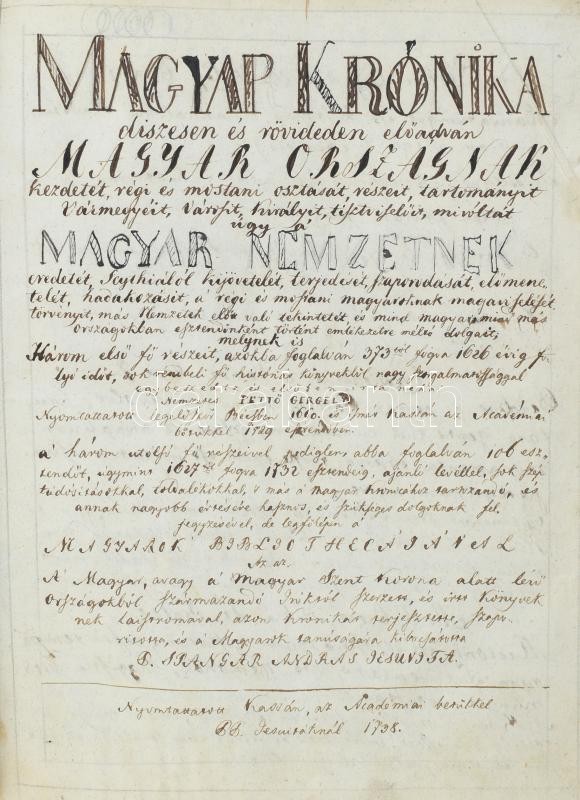 MAGYAR KRÓNIKA
diszesen és rövideden előadván
MAGYAR ORSZÁGNAK
kezdetét, régi és mostani osztását részeit, tartományit
Vármegyéit, Várossit, Királyit, tisztviselőit, mivoltát
úgy a
MAGYAR NEMZETNEK
eredetét, Scythiából kijövetelét, terjedését, szaporodását, előmene-
telét, hadakozásit, a régi és mostani magyaroknak magok viselését
törvényit, más Nemzetek első való tekintetét, és mind magyar, mind más
országokban esztendőnként történt emlékezetre méltó dolgait,
melynek is
Három első fő részeit, azokba foglalván 373tól fogva 1626 évig f.
lyó időt, sok rendbéli fő históriás könyvekből nagy szorgalmatossággal
egybeszedte és elsőben irta néhai
Nemzetes PETTŐ GERGELY
Nyomtattatott legelőször Bécsben 1660. és ismét Kassán az Académiai
bötűkkel 1729 esztendőben.
a három utolsó fő részeivel pediglen, abba foglalván 106 esz-
tendőt, úgymint 1627től fogva 1732 esztendeig, ajánló levéllel, sok szép
tudósításokkal, toldalékokkal, s más a magyar krónicához tartozandó, és
annak nagyobb értésére hasznos, és szükséges dolgoknak fel
jegyzésével, de legfőképen a
MAGYAROK BIBLIOTHECÁJÁVAL
Az az.
A Magyar, avagy á Magyar Szent Korona alatt lévő
Országokból származandó Iróktól szerzett, és irtt Könyvek
nek laistromával, azon Krónikát terjesztette, szapo-
ritotta, és á Magyarok tanúságára kibocsátotta
P. SPANGÁR ANDRÁS JESUVITA.
Nyomtattatott Kassán, az Académiai betűkkel
PP. Jesuitáknál 1738.
darabanth